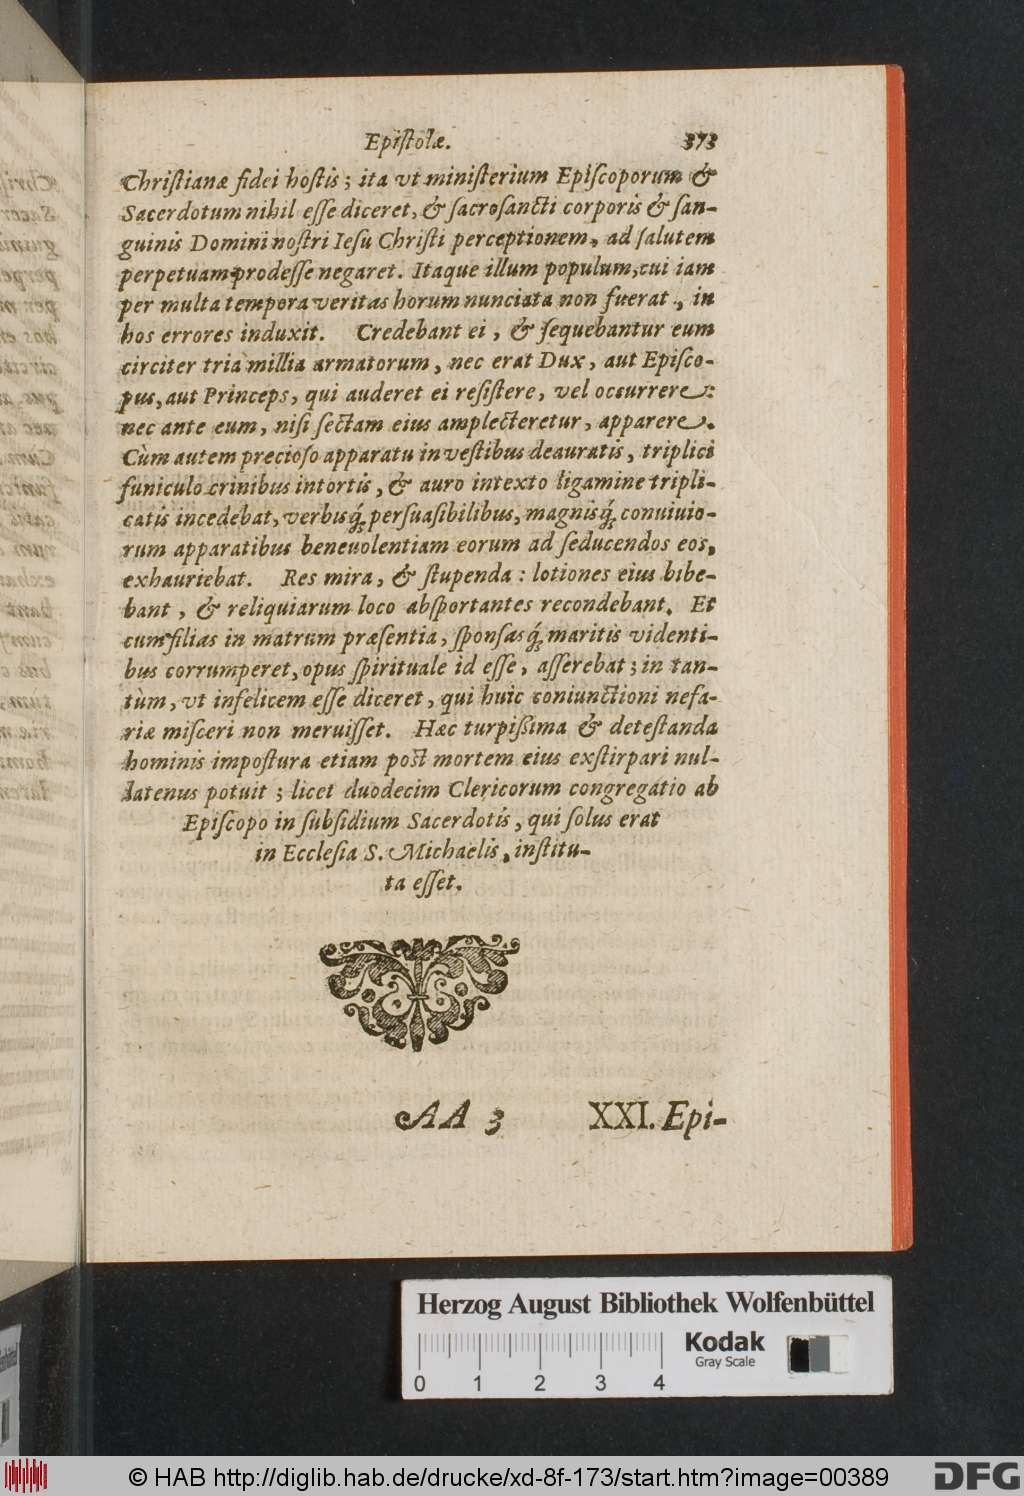 Epiſtolæ. 373
Chriſtianæ fidei hoſtis; ita vt miniſterium Epiſcoporum &
Sacerdotum nihil eſſe diceret, & ſacroſancti corporis & ſan-
guinis Domini noſtri Ieſu Chriſti perceptionem, ad ſalutem
perpetuam prodeſſe negaret. Itaque illum populum, cui iam
per multa tempora veritas horum nunciata non fuerat, in
hos errores induxit. Credebant ei, & ſequebantur eum
circiter tria millia armatorum, nec erat Dux, aut Epiſco-
pus, aut Princeps, qui auderet ei reſiſtere, vel occurrere:
nec ante eum, niſi ſectam eius amplecteretur, apparere.
Cùm autem precioſo apparatu in veſtibus deauratis, triplici
funiculo crinibus intortis, & auro intexto ligamine tripli-
catis incedebat, verbisq́; perſuaſibilibus, magnisq́; conuiuio-
rum apparatibus beneuolentiam eorum ad ſeducendos eos,
exhauriebat. Res mira, & ſtupenda: lotiones eius bibe-
bant, & reliquiarum loco abſportantes recondebant. Et
cum filias in matrum præſentia, ſponſasq́; maritis videnti-
bus corrumperet, opus ſpirituale id eſſe, aſſerebat; in tan-
tùm, vt infelicem eſſe diceret, qui huic coniunctioni nefa-
riæ miſceri non meruiſſet. Hæc turpißima & deteſtanda
hominis impoſtura etiam poſt mortem eius exſtirpari nul-
latenus potuit; licet duodecim Clericorum congregatio ab
Epiſcopo in ſubſidium Sacerdotis, qui ſolus erat
in Eccleſia S. Michaelis, inſtitu-
ta eſſet.
AA 3 XXI. Epi-
Herzog August Bibliothek Wolfenbüttel
Kodak
Gray Scale
0 1 2 3 4
© HAB http://diglib.hab.de/drucke/xd-8f-173/start.htm?image=00389
DFG